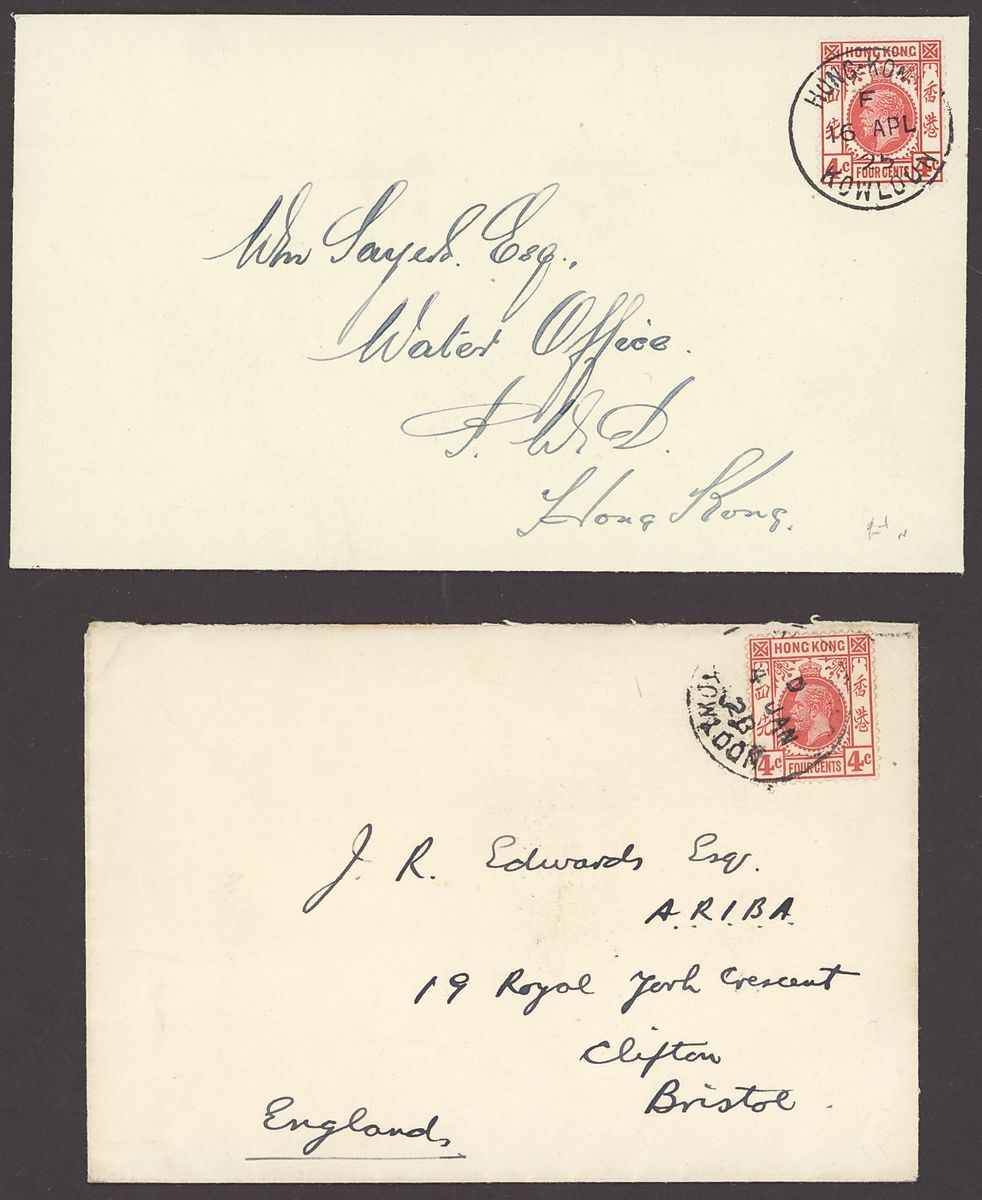 HONG KONG
香港
四先
4c FOUR CENTS 4c
HONG-KON
F
16 APL
25
KOWLOON
Wm Sayers. Esq.,
Water Office.
P. W. D.
Hong Kong.
HONG KONG
香港
四先
4c FOUR CENTS 4c
D
4 JAN
KOWLOON
J. R. Edwards Esq.
A.R.I.B.A.
19 Royal York Crescent
Clifton
Bristol.
England